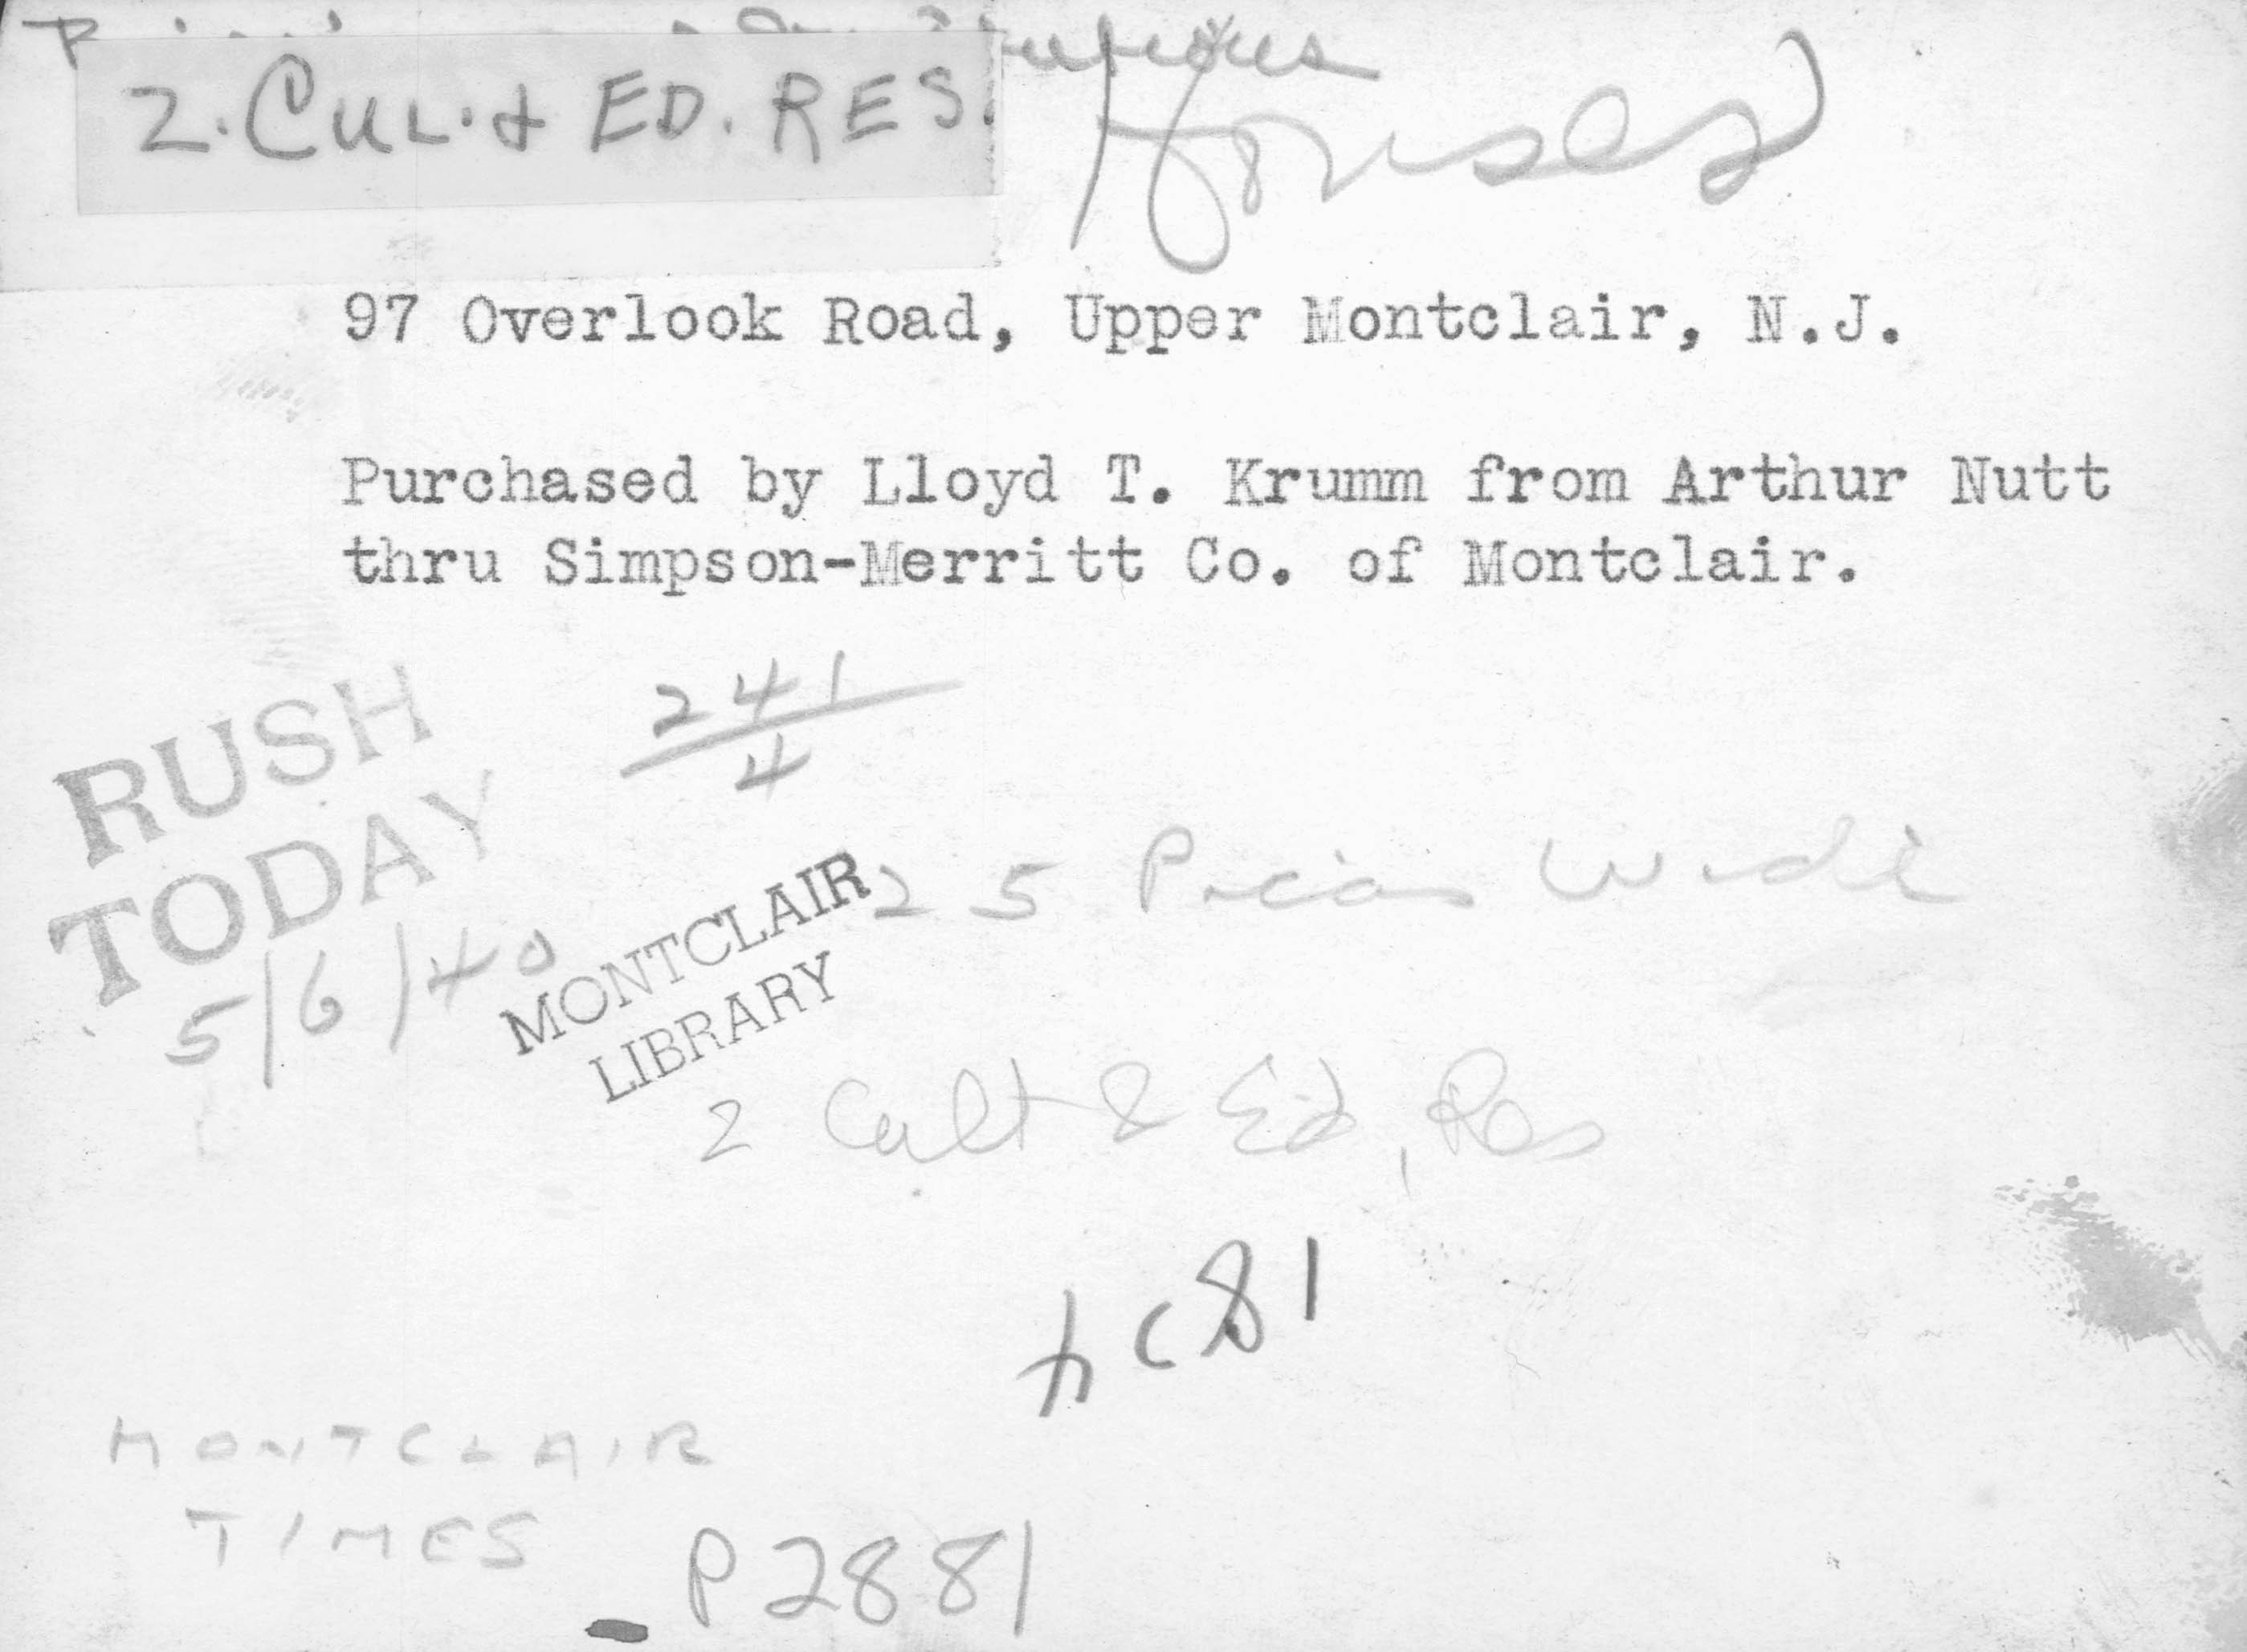 2. CUL. & ED. RES.
Houses
97 Overlook Road, Upper Montclair, N.J.
Purchased by Lloyd T. Krumm from Arthur Nutt
thru Simpson-Merritt Co. of Montclair.
RUSH
TODAY
241
4
5/6/40
MONTCLAIR
LIBRARY
25 Picas Wide
2 Cult & Ed, Res
81
MONTCLAIR
TIMES
P2881